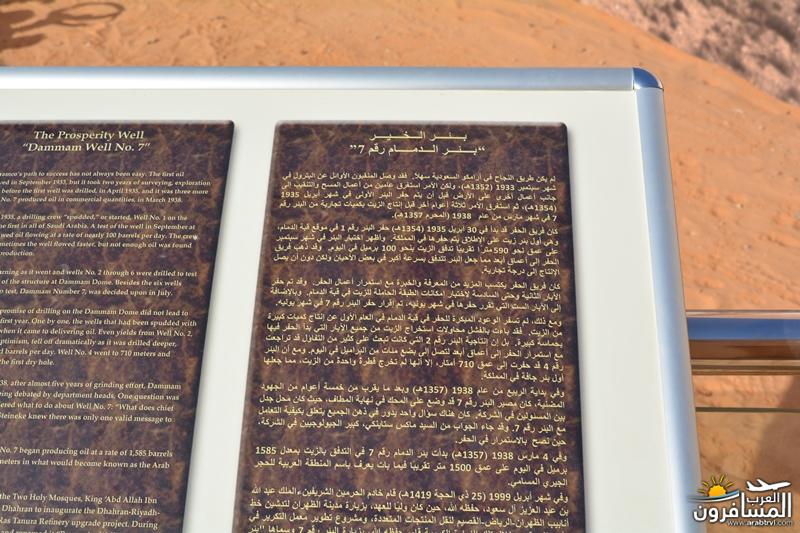 The Prosperity Well
"Dammam Well No. 7"
ramco's path to success has not always been easy. The first oil
ved in September 1933, but it took two years of surveying, exploration
before the first well was drilled, in April 1935, and it was three more
No. 7 produced oil in commercial quantities, in March 1938.
1935, a drilling crew "spudded," or started, Well No. 1 on the
me first in all of Saudi Arabia. A test of the well in September at
wed oil flowing at a rate of nearly 100 barrels per day. The crew
metimes the well flowed faster, but not enough oil was found
production.
rning as it went and wells No. 2 through 6 were drilled to test
of the structure at Dammam Dome. Besides the six wells
to test, Dammam Number 7, was decided upon in July.
promise of drilling on the Dammam Dome did not lead to
first year. One by one, the wells that had been spudded with
when it came to delivering oil. Even yields from Well No. 2,
optimism, fell off dramatically as it was drilled deeper,
d barrels per day. Well No. 4 went to 710 meters and
the first dry hole.
38, after almost five years of grinding effort, Dammam
eing debated by department heads. One question was
dered what to do about Well No. 7: "What does chief
Steineke knew there was only one valid message to
No. 7 began producing oil at a rate of 1,585 barrels
meters in what would become known as the Arab
the Two Holy Mosques, King 'Abd Allah Ibn
Dhahran to inaugurate the Dhahran-Riyadh-
Ras Tanura Refinery upgrade project. During
بـئـر الـخـيـر
"بـئـر الدمـام رقم 7"
لم يكن طريق النجاح في أرامكو السعودية سهلاً. فقد وصل المنقبون الأوائل عن البترول في
شهر سبتمبر 1933 (1352هـ)، ولكن الأمر استغرق عامين من أعمال المسح والتنقيب إلى
جانب أعمال أخرى على الأرض قبل أن يتم حفر البئر الأولى في شهر أبريل 1935
(1354هـ)، ثم استغرق الأمر ثلاثة أعوام أخر قبل إنتاج الزيت بكميات تجارية من البئر رقم
7 في شهر مارس من عام 1938 (المحرم 1357هـ).
كان فريق الحفر قد بدأ في 30 أبريل 1935 (1354هـ) حفر البئر رقم 1 في موقع قبة الدمام،
وهي أول بئر زيت على الإطلاق يتم حفرها في المملكة. وأظهر اختبار البئر في شهر سبتمبر
على عمق نحو 590 مترا تقريبا تدفق الزيت بنحو 100 برميل في اليوم. وقد ذهب فريق
الحفر إلى أعماق أبعد مما جعل البئر تتدفق بسرعة أكبر في بعض الأحيان ولكن دون أن يصل
الإنتاج إلى درجة تجارية.
كان فريق الحفر يكتسب المزيد من المعرفة والخبرة مع استمرار أعمال الحفر. وقد تم حفر
الآبار الثانية وحتى السادسة لاختبار إمكانات الطبقة الحاملة للزيت في قبة الدمام. وبالإضافة
إلى الآبار الستة التي تقرر حفرها في شهر يونيه، تم إقرار حفر البئر رقم 7 في شهر يوليه.
ومع ذلك، لم تسفر الوعود المبكرة للحفر في قبة الدمام في العام الأول عن إنتاج كميات كبيرة
من الزيت. فقد باءت بالفشل محاولات استخراج الزيت من جميع الآبار التي بدأ الحفر فيها
بحماسة كبيرة. بل إن إنتاجية البئر رقم 2 التي كانت تبعث على كثير من التفاؤل قد تراجعت
مع استمرار الحفر إلى أعماق أبعد لتصل إلى بضع مئات من البراميل في اليوم. ومع أن البئر
رقم 4 قد حفرت إلى عمق 710 أمتار، إلا أنها لم تخرج قطرة واحدة من الزيت، مما جعلها
أول بئر جافة في المملكة.
وفي بداية الربيع من عام 1938 (1357هـ) وبعد ما يقرب من خمسة أعوام من الجهود
المضنية، كان مصير البئر رقم 7 قد وضع على المحك في نهاية المطاف، حيث كان محل جدل
بين المسئولين في الشركة. كان هناك سؤال واحد يدور في ذهن الجميع يتعلق بكيفية التعامل
مع البئر رقم 7. وقد جاء الجواب من السيد ماكس ستاينكي، كبير الجيولوجيين في الشركة،
حين نصح بالاستمرار في الحفر.
وفي 4 مارس 1938 (1357هـ) بدأت بئر الدمام رقم 7 في التدفق بالزيت بمعدل 1585
برميل في اليوم على عمق 1500 متر تقريبا فيما بات يعرف باسم المنطقة العربية للحجر
الجيري المسامي.
وفي شهر أبريل 1999 (25 ذي الحجة 1419هـ) قام خادم الحرمين الشريفين، الملك عبد الله
بن عبد العزيز آل سعود، حفظه الله، حين كان وليًا للعهد، بزيارة مدينة الظهران لتدشين خط
أنابيب الظهران-الرياض-القصيم لنقل المنتجات المتعددة، ومشروع تطوير معمل التكرير في
العرب
المسافرون
www.arabtrvl.com